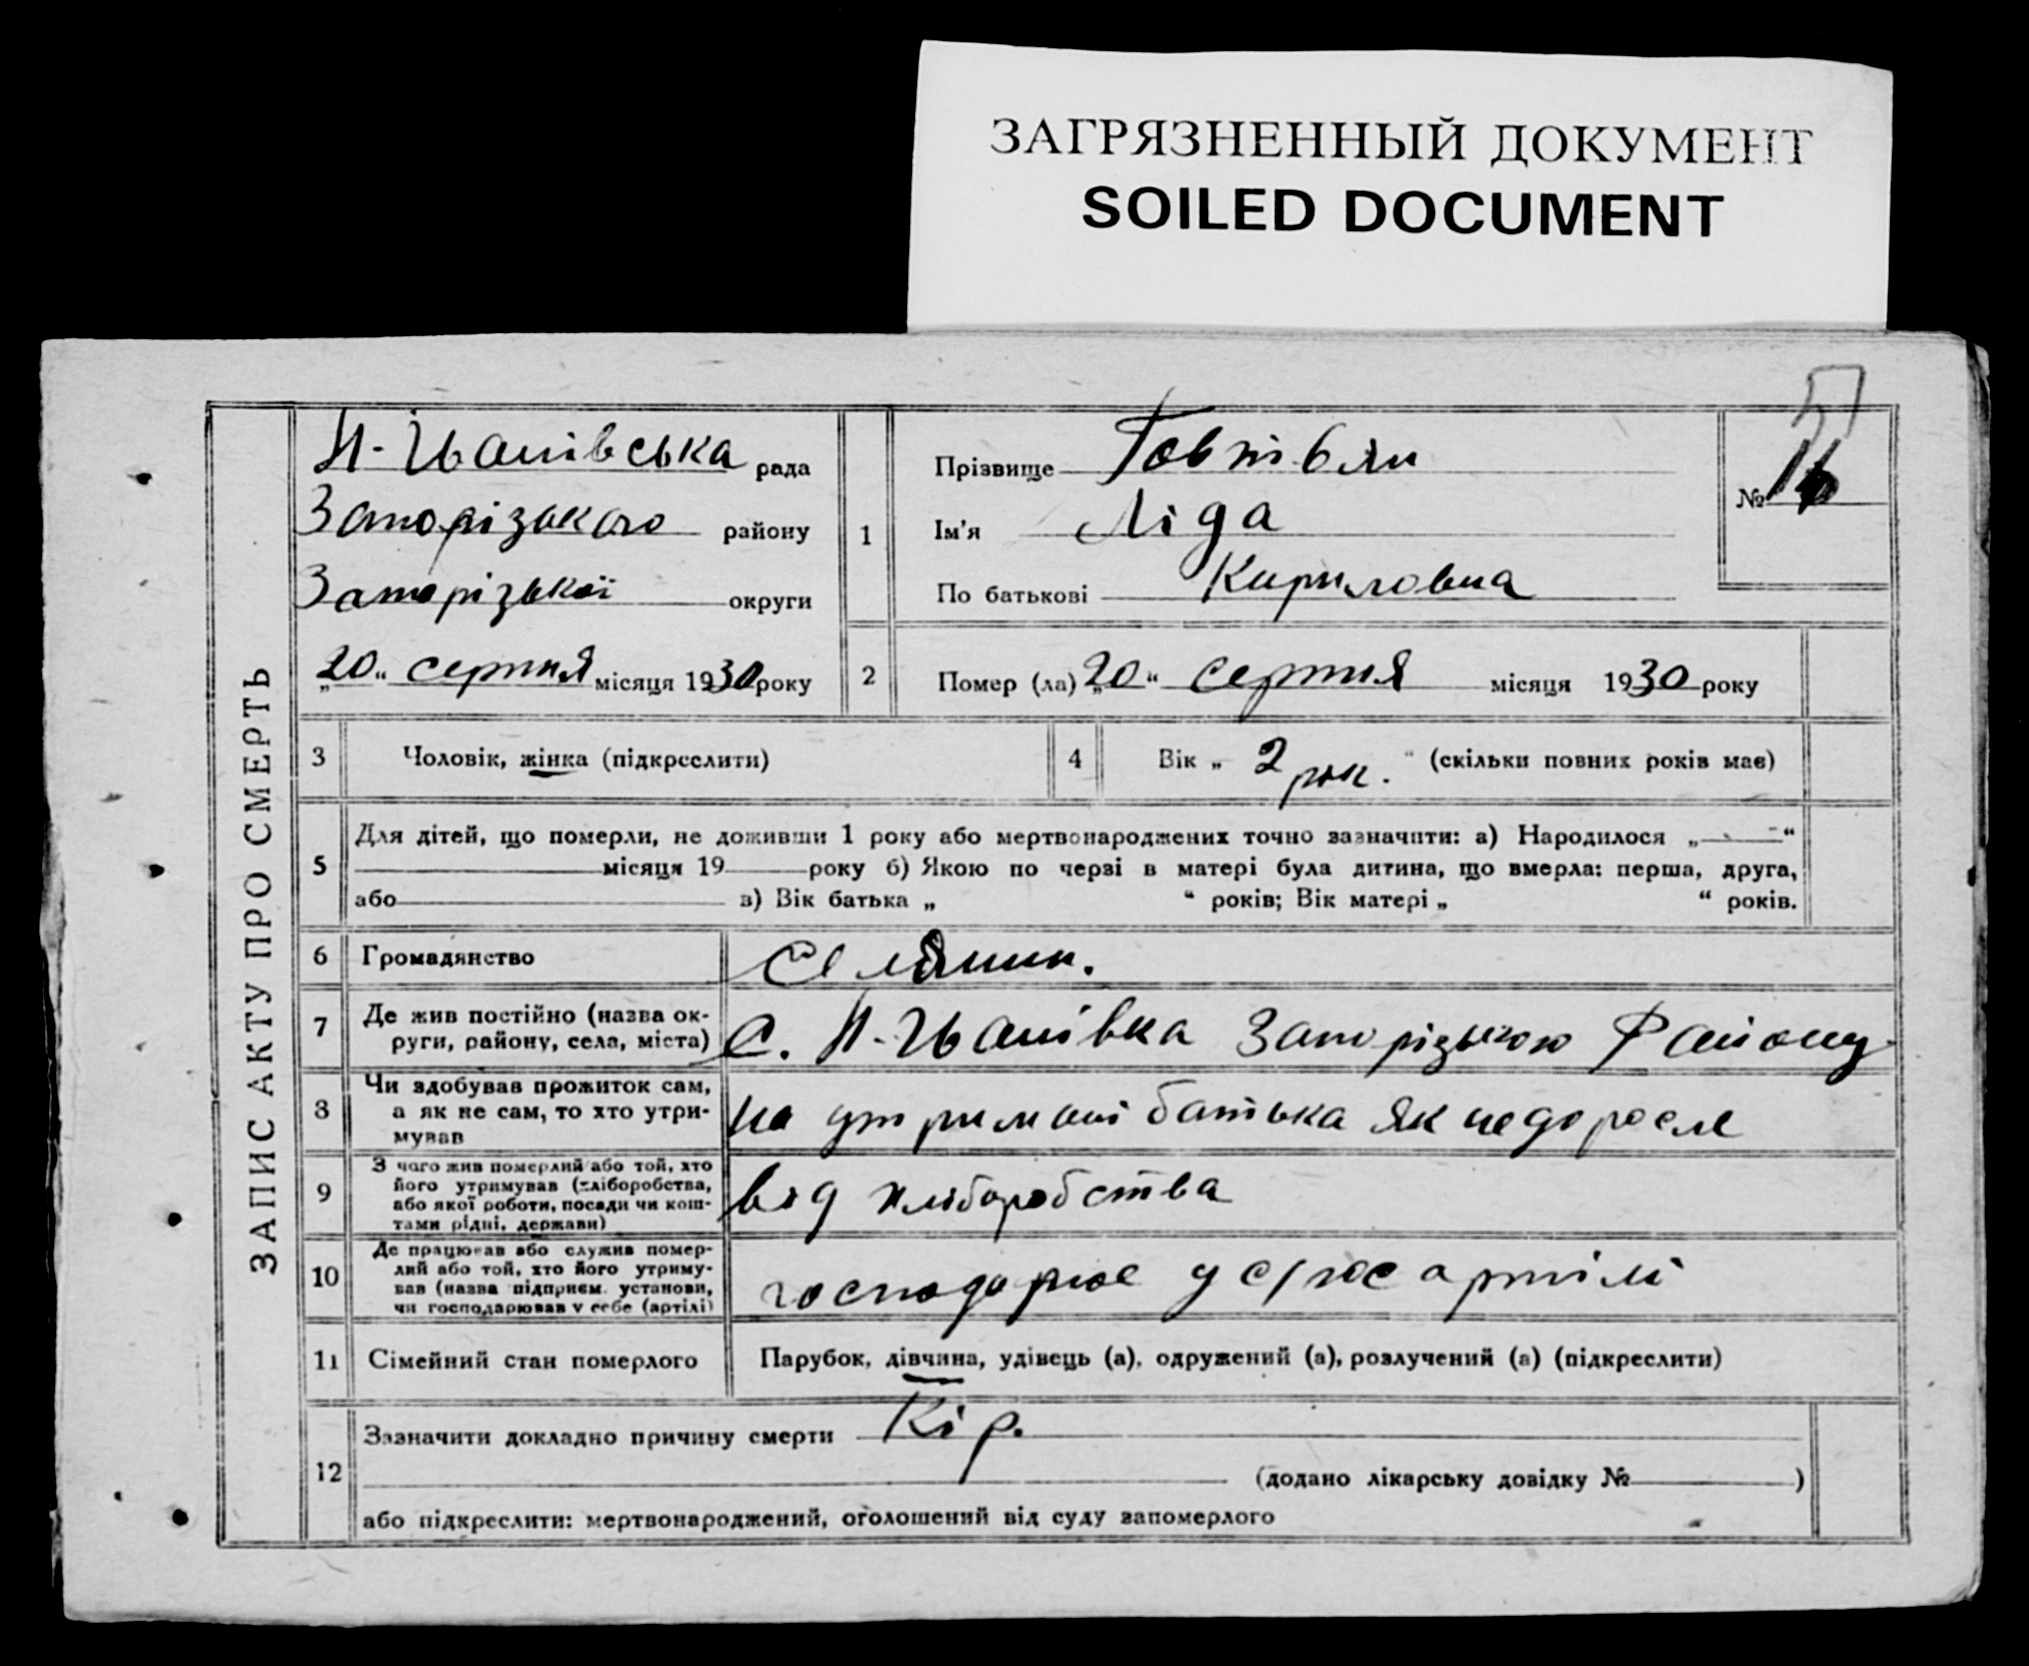 ЗАГРЯЗНЕННЫЙ ДОКУМЕНТ
SOILED DOCUMENT
ЗАПИС АКТУ ПРО СМЕРТЬ
рада
Запорізького району
Запорізької округи
„20“ серпня місяця 1930 року
1
Прізвище
Ім'я Ліда
По батькові Кириловна
№
2 Помер (ла) „20“ серпня місяця 1930 року
3 Чоловік, жінка (підкреслити)
4 Вік „ 2 рок. “ (скільки повних років має)
5 Для дітей, що померли, не доживши 1 року або мертвонароджених точно зазначити: а) Народилося „ “
місяця 19 року б) Якою по черзі в матері була дитина, що вмерла: перша, друга,
або в) Вік батька „ “ років; Вік матері „ “ років.
6 Громадянство селянин.
7 Де жив постійно (назва ок-
руги, району, села, міста) с. Запорізького Району
8 Чи здобував прожиток сам,
а як не сам, то хто утри-
мував на утримані батька як недоросле
9 З чого жив померлий або той, хто
його утримував (хліборобства,
або якої роботи, посади чи кош-
тами рідні, держави) від хліборобства
10 Де працював або служив помер-
лий або той, хто його утриму-
вав (назва підприєм. установи,
чи господарював у себе (артілі) господарює у с/гос артілі
11 Сімейний стан померлого Парубок, дівчина, удівець (а), одружений (а), розлучений (а) (підкреслити)
12 Зазначити докладно причину смерти Кір.
(додано лікарську довідку № )
або підкреслити: мертвонароджений, оголошений від суду запомерлого